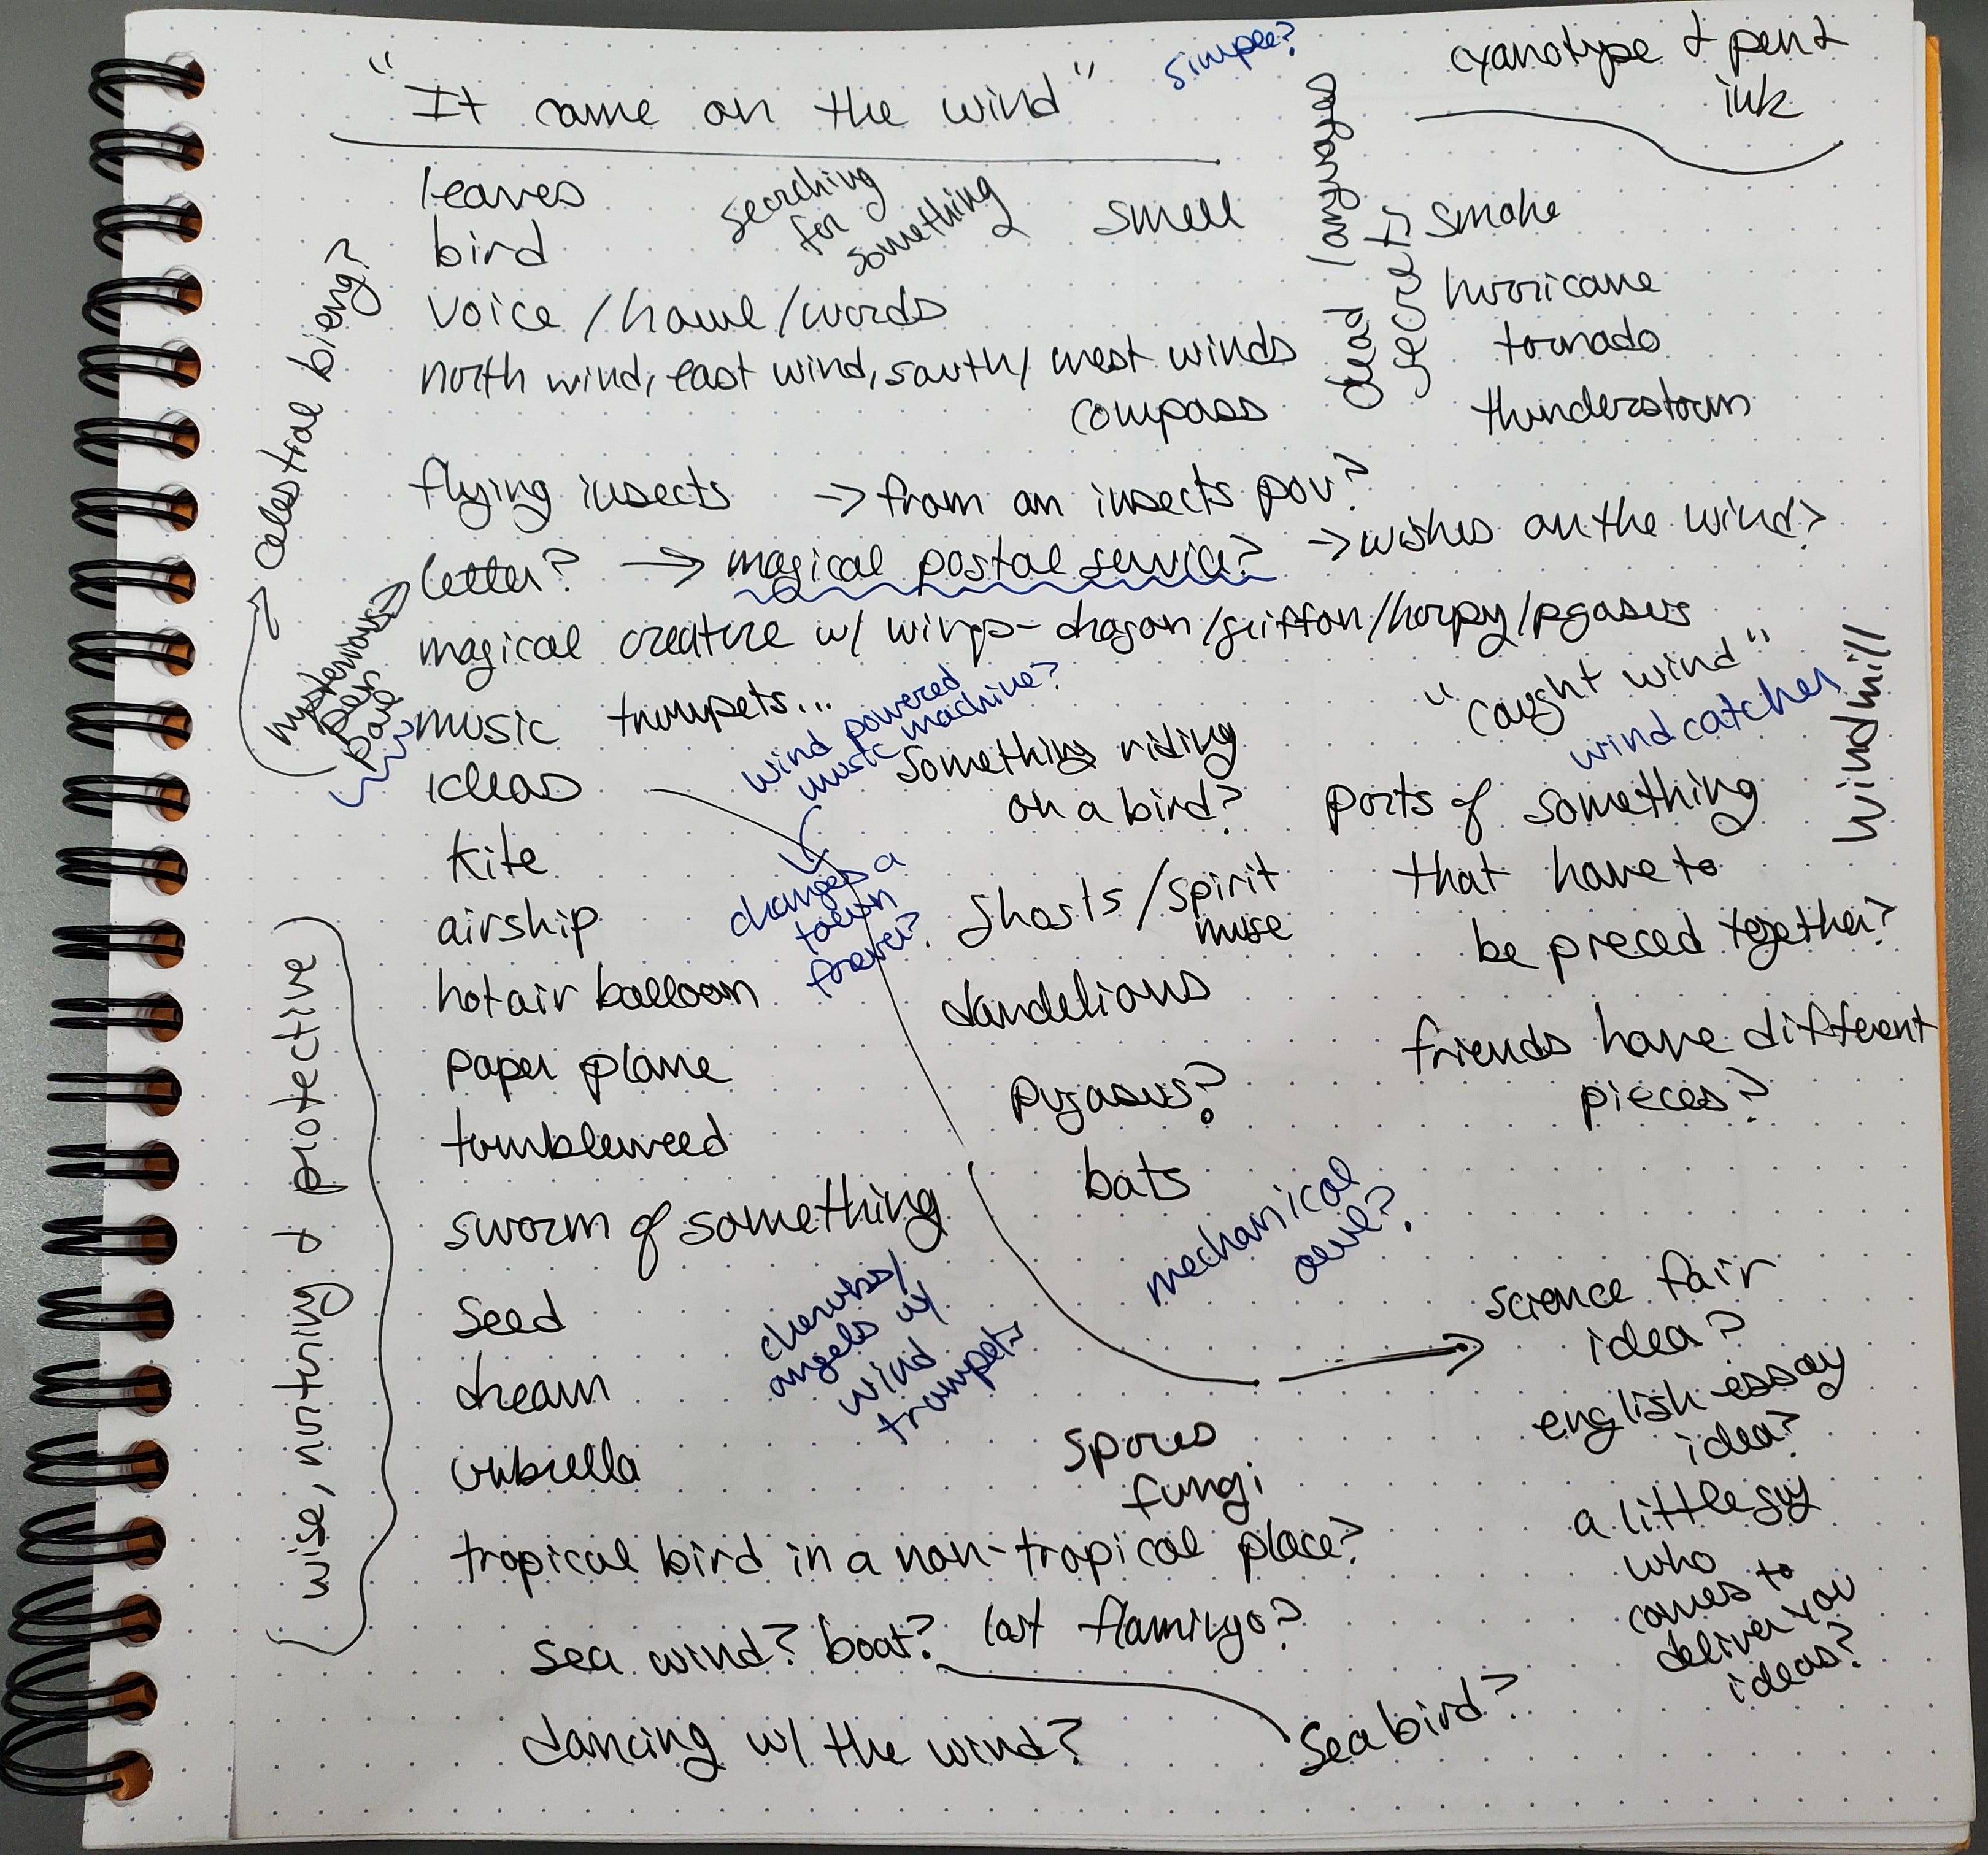 "It came on the wind"
simple?
cyanotype & pen &
ink
leaves
bird
searching
for
something
smell
dead languages
secrets
smoke
hurricane
tornado
thunderstorm
voice / howl / words
north wind, east wind, south / west winds
compass
celestral bieng?
flying insects → from an insects pov?
letter? → magical postal service? → wishes on the wind?
mysterious
pen
pal
magical creature w/ wings - dragon/griffon/harpy/pgasus
music trumpets...
wind powered
music machine?
changes a
town
forever?
"caught wind"
wind catcher
windmill
ideas
something riding
on a bird?
parts of something
that have to
be pieced together?
friends have different
pieces?
kite
airship
hot air balloon
paper plane
tumbleweed
swarm of something
seed
dream
umbrella
ghosts / spirit
muse
dandelions
pygasus?
bats
mechanical
owl?
cherubs/
angels w/
wind
trumpets
wise, nurturing & protective
science fair
idea?
english essay
idea?
a little guy
who
comes to
deliver you
ideas?
spores
fungi
tropical bird in a non-tropical place?
sea wind? boat? lost flamingo?
dancing w/ the wind?
Sea bird?